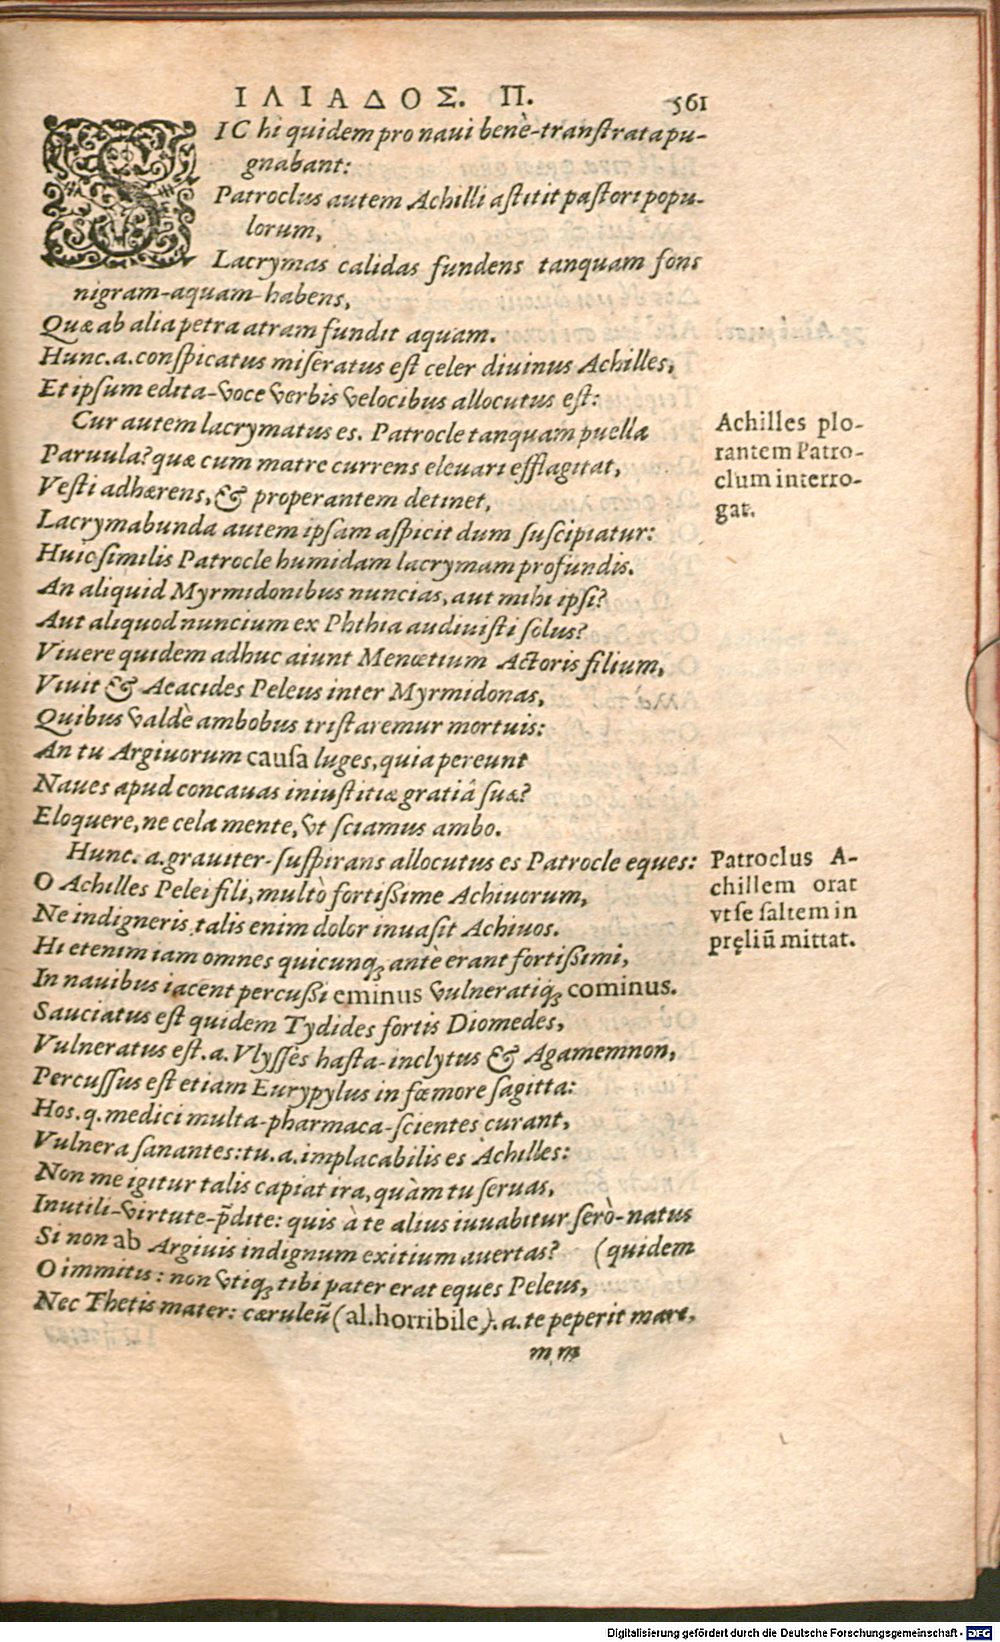 ΙΛΙΑΔΟΣ. Π. 561
SIC hi quidem pro naui benè-transtrata pu-
gnabant:
Patroclus autem Achilli astitit pastori popu-
lorum,
Lacrymas calidas fundens tanquam fons
nigram-aquam-habens,
Quæ ab alia petra atram fundit aquam.
Hunc.a.conspicatus miseratus est celer diuinus Achilles,
Et ipsum edita-voce verbis velocibus allocutus est:
Cur autem lacrymatus es. Patrocle tanquam puella
Paruula? quæ cum matre currens eleuari efflagitat,
Vesti adhærens, & properantem detinet,
Lacrymabunda autem ipsam aspicit dum suscipiatur:
Huic similis Patrocle humidam lacrymam profundis.
An aliquid Myrmidonibus nuncias, aut mihi ipsi?
Aut aliquod nuncium ex Phthia audiuisti solus?
Viuere quidem adhuc aiunt Menœtium Actoris filium,
Viuit & Aeacides Peleus inter Myrmidonas,
Quibus valdè ambobus tristaremur mortuis:
An tu Argiuorum causa luges, quia pereunt
Naues apud concauas iniustitiæ gratiâ suæ?
Eloquere, ne cela mente, vt sciamus ambo.
Hunc. a. grauiter-suspirans allocutus es Patrocle eques:
O Achilles Pelei fili, multò fortissime Achiuorum,
Ne indigneris, talis enim dolor inuasit Achiuos.
Hi etenim iam omnes quicunq; antè erant fortissimi,
In nauibus iacent percussi eminus vulneratiq; cominus.
Sauciatus est quidem Tydides fortis Diomedes,
Vulneratus est.a. Vlysses hasta-inclytus & Agamemnon,
Percussus est etiam Eurypylus in fœmore sagitta:
Hos.q. medici multa-pharmaca-scientes curant,
Vulnera sanantes: tu.a. implacabilis es Achilles:
Non me igitur talis capiat ira, quàm tu seruas,
Inutili-virtute-p̃dite: quis à te alius iuuabitur serò-natus
Si non ab Argiuis indignum exitium auertas? (quidem
O immitis: non vtiq; tibi pater erat eques Peleus,
Nec Thetis mater: cæruleũ (al. horribile). a. te peperit mare,
m m
Achilles plo-
rantem Patro-
clum interro-
gat.
Patroclus A-
chillem orat
vt se saltem in
pręliũ mittat.
Digitalisierung gefördert durch die Deutsche Forschungsgemeinschaft - DFG